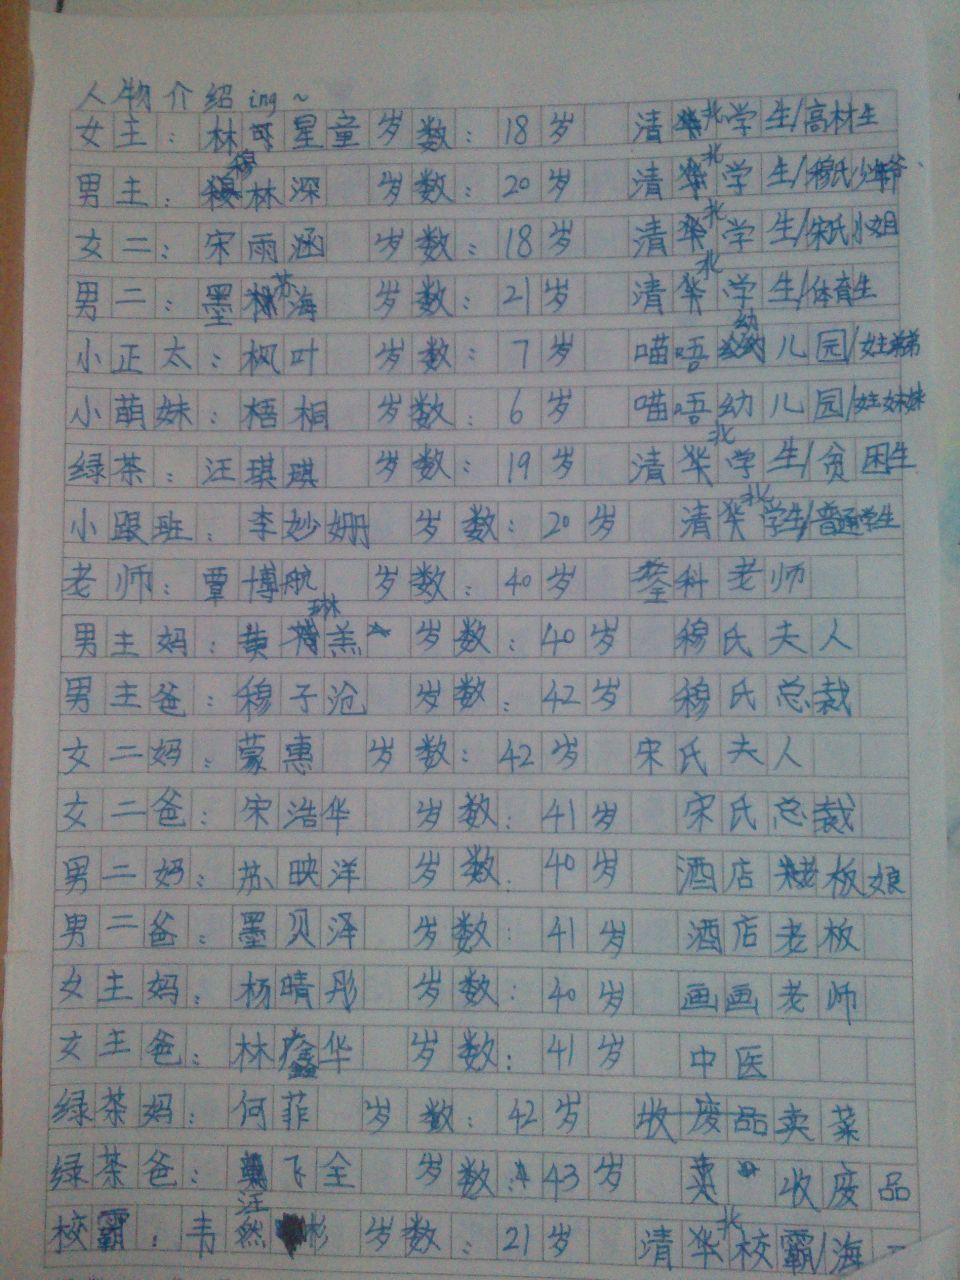 人物介绍ing~
女主：林可星童 岁数：18岁 清北学生/高材生
男主：穆林深 岁数：20岁 清北学生/穆氏少爷
女二：宋雨涵 岁数：18岁 清北学生/宋氏小姐
男二：墨苏海 岁数：21岁 清北学生/体育生
小正太：枫叶 岁数：7岁 喵唔幼儿园/女主弟弟
小萌妹：梧桐 岁数：6岁 喵唔幼儿园/女主妹妹
绿茶：汪琪琪 岁数：19岁 清北学生/贫困生
小跟班：李妙姗 岁数：20岁 清北学生/普通学生
老师：覃博航 岁数：40岁 全科老师
男主妈：黄琳羔 岁数：40岁 穆氏夫人
男主爸：穆子沧 岁数：42岁 穆氏总裁
女二妈：蒙惠 岁数：42岁 宋氏夫人
女二爸：宋浩华 岁数：41岁 宋氏总裁
男二妈：苏映洋 岁数：40岁 酒店老板娘
男二爸：墨贝泽 岁数：41岁 酒店老板
女主妈：杨晴彤 岁数：40岁 画画老师
女主爸：林鑫华 岁数：41岁 中医
绿茶妈：何菲 岁数：42岁 卖菜
绿茶爸：汪飞全 岁数：43岁 收废品
校霸：韦然彬 岁数：21岁 清北校霸/海